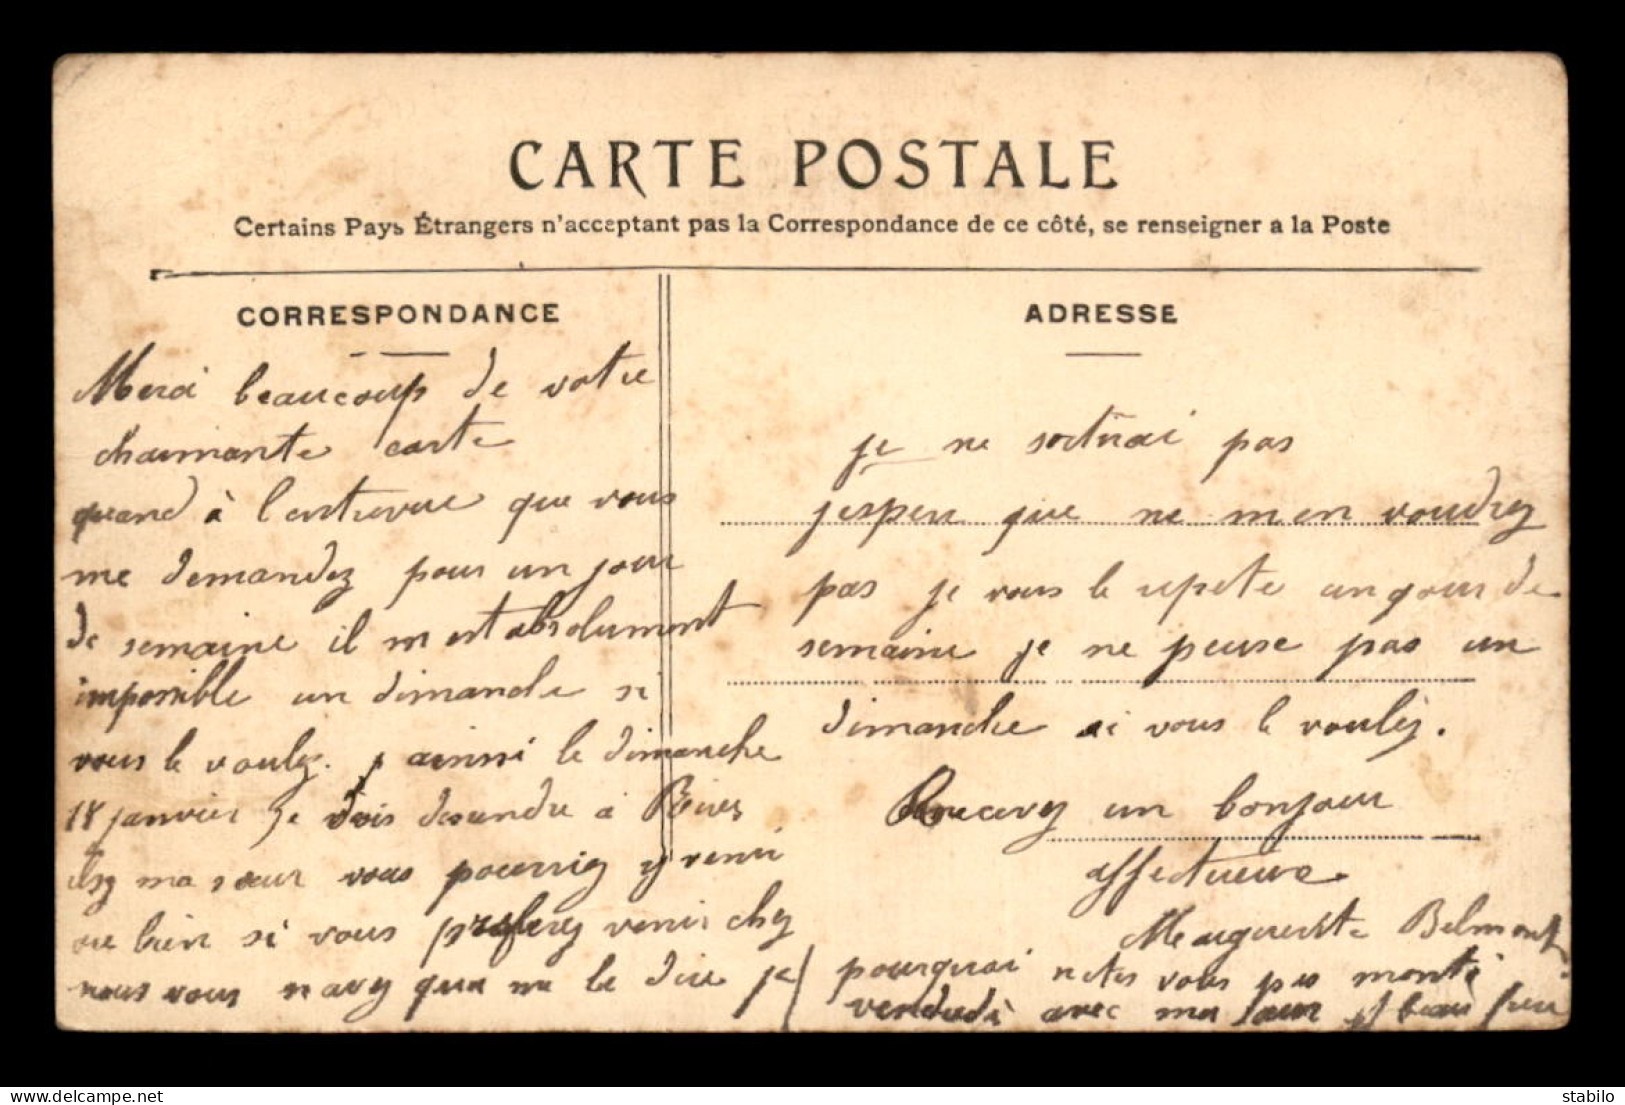 CARTE POSTALE
Certains Pays Étrangers n'acceptant pas la Correspondance de ce côté, se renseigner a la Poste
CORRESPONDANCE
Merci beaucoup de votre
charmante carte
quand à l'entrevue que vous
me demandez pour un jour
de semaine il m est absolument
impossible un dimanche si
vous le voulez. ainsi le dimanche
18 janvier je dois descendre à Rives
chez ma sœur vous pourriez y venir
ou bien si vous préferez venir chez
nous vous navez qua me le dire je
ADRESSE
je ne sortirai pas
jespere que ne m en voudrez
pas je vous le repete un jour de
semaine je ne peux pas un
dimanche si vous le voulez.
Recevez un bonjour
affectueux
Marguerite Belmont
pourquoi netes vous pas monté
vendudi avec ma sœur beau frere
delcampe.net
stabilo